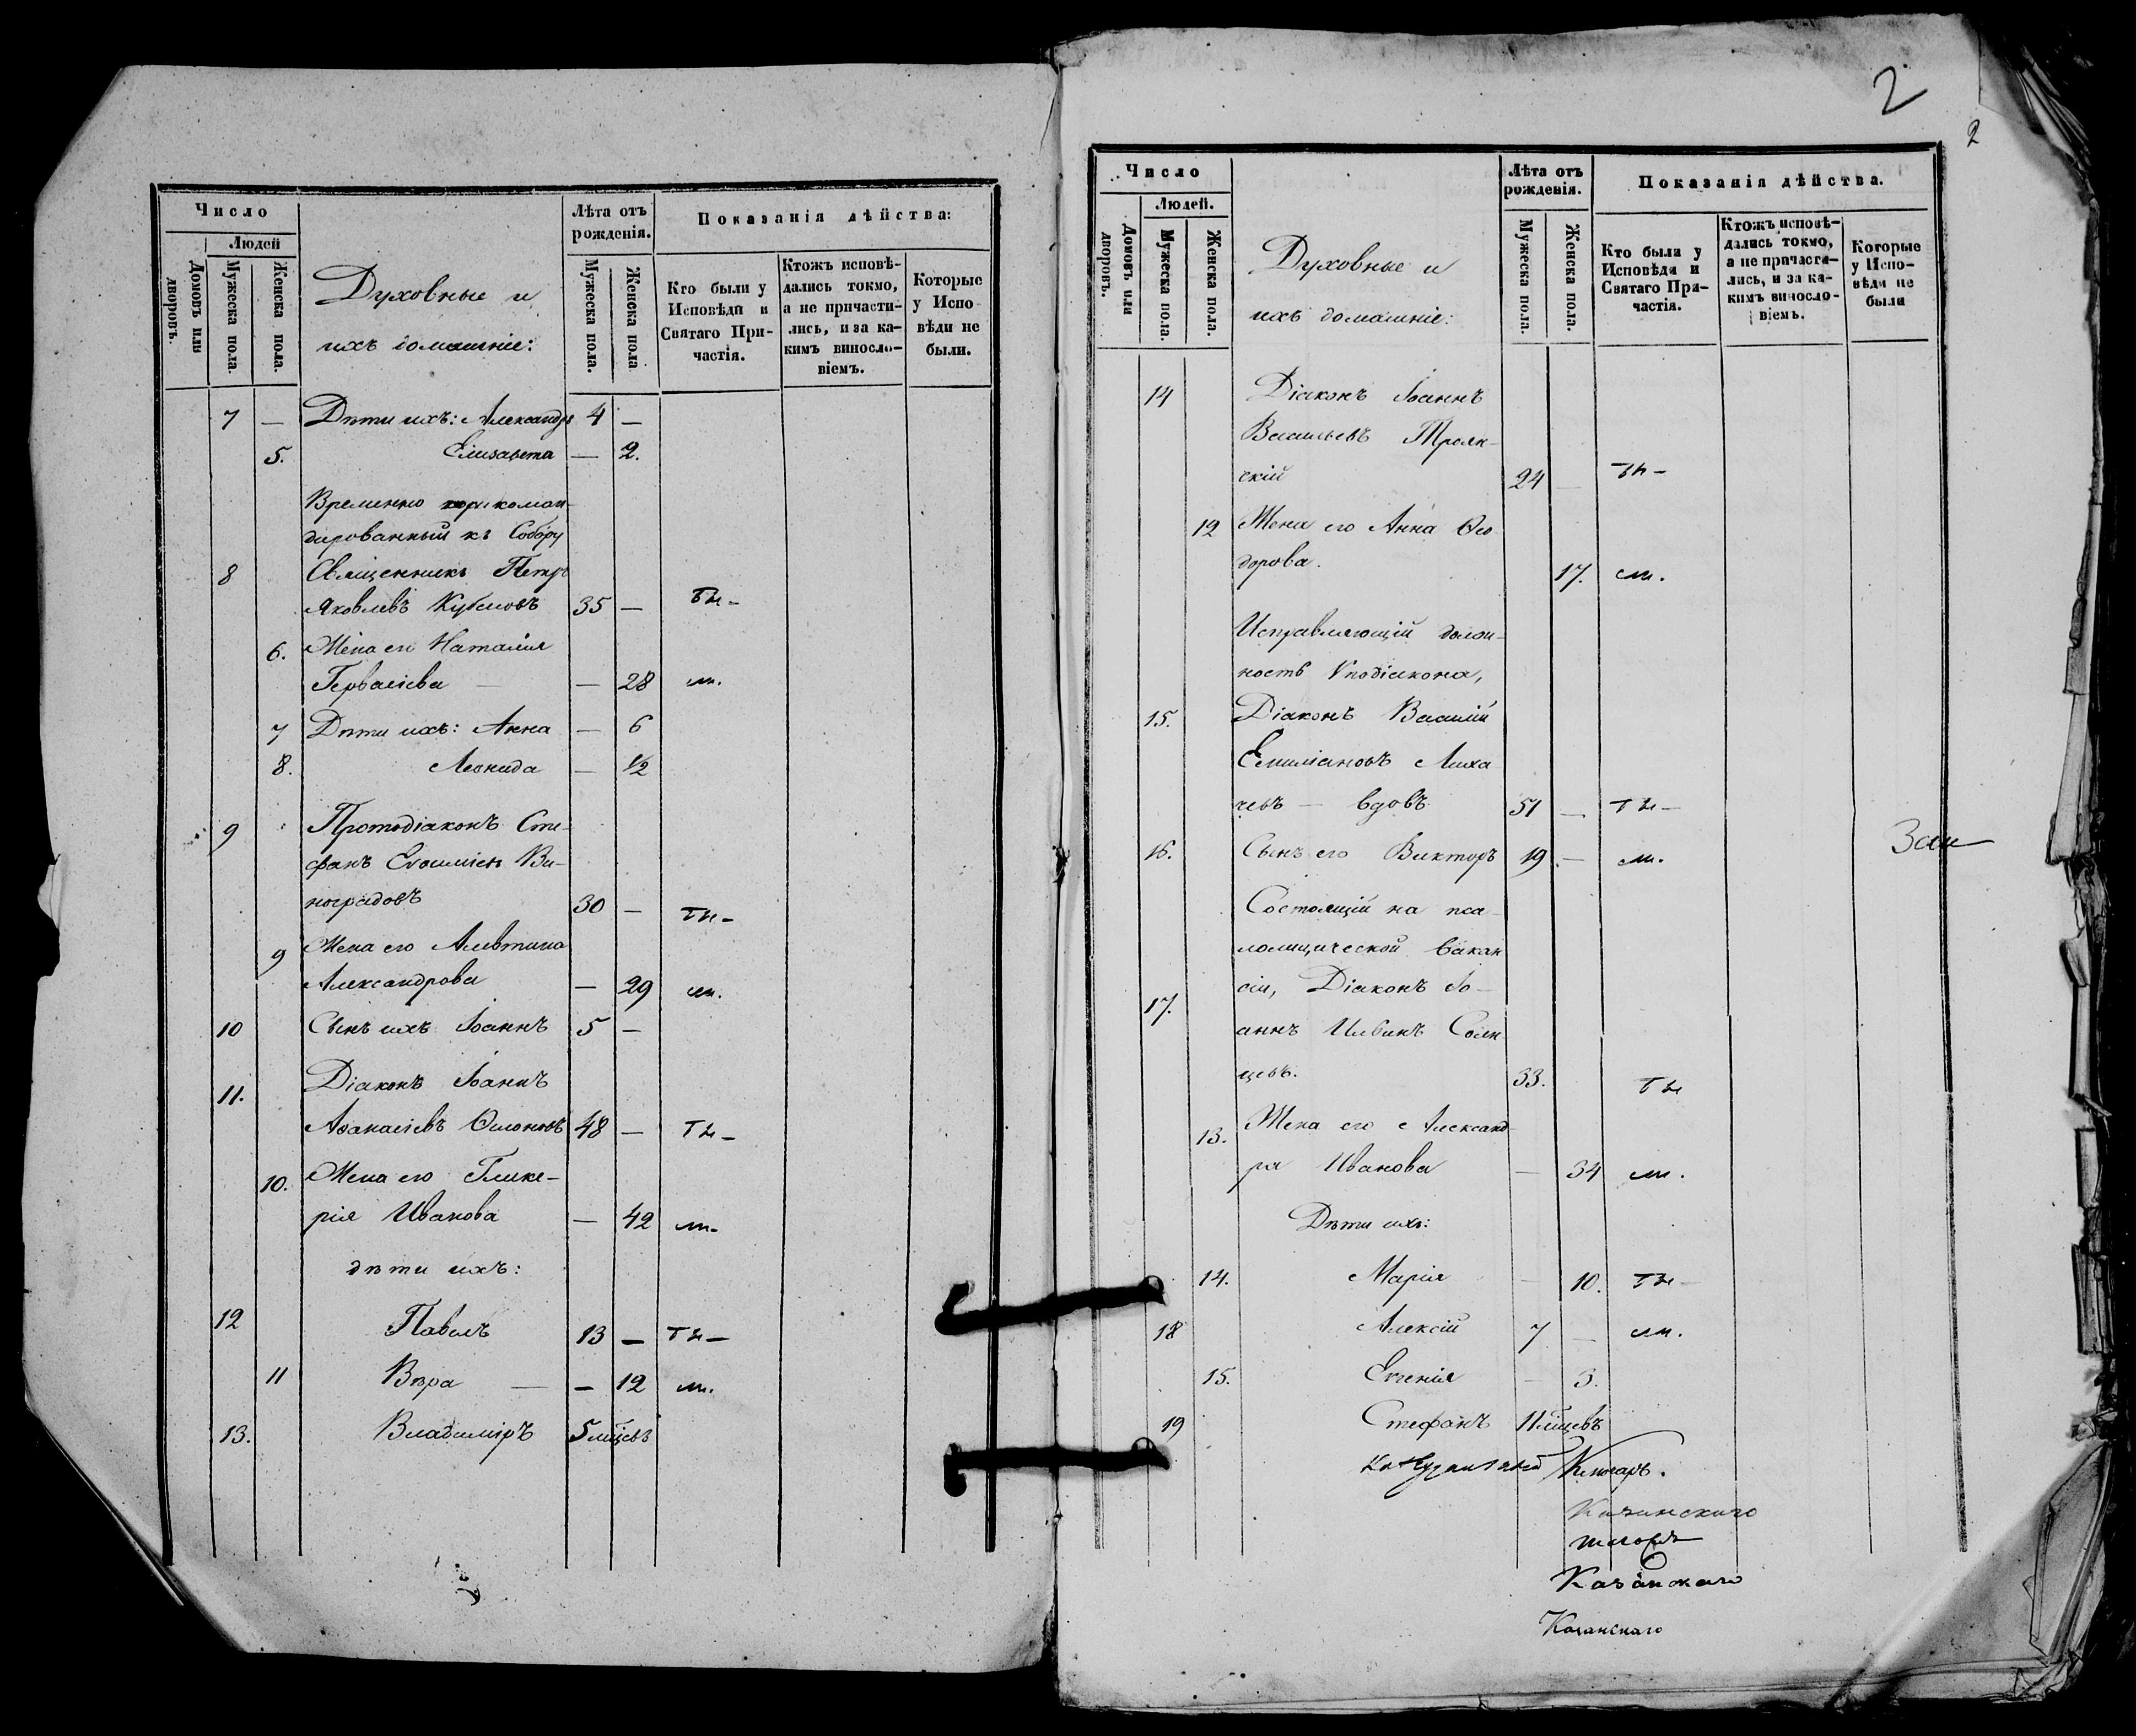 Число
Людей
Домовъ или дворовъ.
Мужеска пола.
Женска пола.
Духовные и
ихъ домашніе:
Лѣта отъ
рожденія.
Мужеска пола.
Женска пола
Показанія дѣйства:
Кто были у
Исповѣди и
Святаго При-
частія.
Ктожъ исповѣ-
дались токмо,
а не причасти-
лись, и за ка-
кимъ виносло-
віемъ.
Которые
у Испо-
вѣди не
были.
7 — Дѣти ихъ: Александръ 4 —
5. Елизавета — 2.
Временно прикоман-
дированный къ Собору
8 Священникъ Петръ
Яковлевъ 35 —
6. Жена его Наталія
Гервасіева — — 28
7 Дѣти ихъ: Анна — 6
8. Леонида — 1/2
9 Протодіаконъ Сте-
фанъ Ви-
ноградовъ 30 —
9 Жена его Алевтина
Александрова — 29
10 Сынъ ихъ Іоаннъ 5 —
11. Діаконъ Іоаннъ
Аѳанасіевъ 48 —
10. Жена его Глике-
рія Иванова — 42
дѣти ихъ:
12 Павелъ 13 —
11 Вѣра — — 12
13. Владиміръ 5 мѣсцевъ
2
2
Число
Людей.
Домовъ или дворовъ.
Мужеска пола.
Женска пола.
Духовные и
ихъ домашніе:
Лѣта отъ
рожденія.
Мужеска пола.
Женска пола.
Показанія дѣйства.
Кто были у
Исповѣди и
Святаго При-
частія.
Ктожъ исповѣ-
дались токмо,
а не причасти-
лись, и за ка-
кимъ виносло-
віемъ.
Которые
у Испо-
вѣди не
были
14 Діаконъ Іоаннъ
Васильевъ Троян-
скій 24 —
12 Жена его Анна Ѳео
дорова. 17.
Исправляющій долж-
ность Уподіакона,
15. Діаконъ Василій
Емиліановъ Лиха
чевъ — вдовъ 51 —
16. Сынъ его Викторъ 19 —
Состоящій на пса-
ломщической вакан
сіи, Діаконъ Іо-
17. аннъ Солн
цевъ. 33.
13. Жена его Александ-
ра Иванова — 34
Дѣти ихъ:
14. Марія — 10.
18 Алексій 7 —
15. Евгенія — 3.
19 Стефанъ 11 мѣсцевъ
Ключарь.
Казанскаго
Казанскаго
Казанскаго